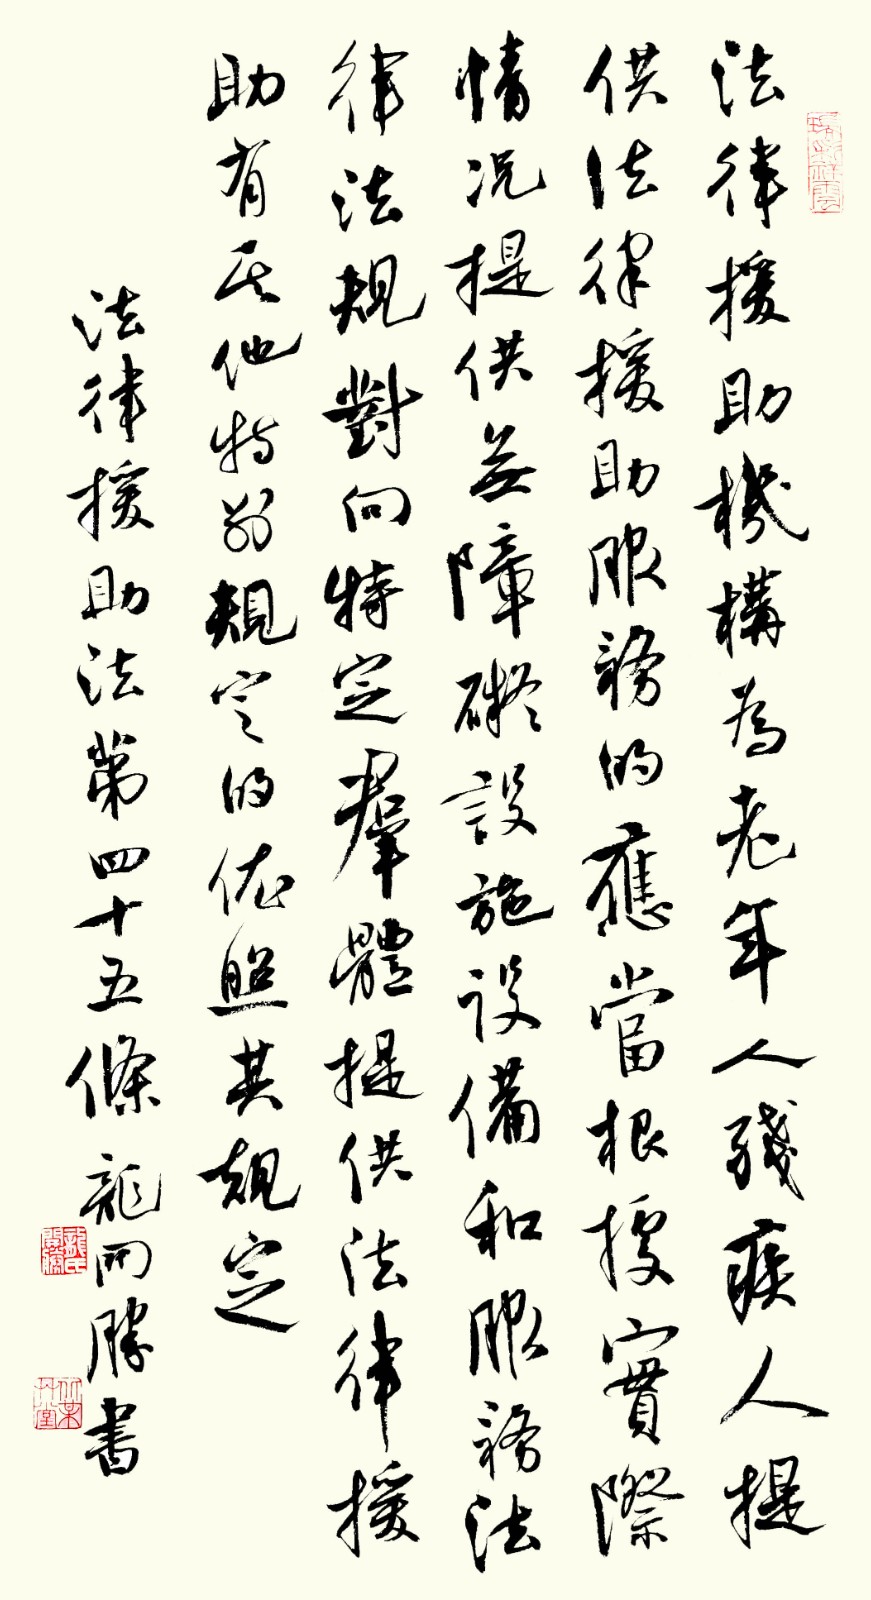 法律援助機構為老年人殘疾人提
供法律援助服務的應當根據實際
情况提供無障礙設施設備和服務法
律法規對向特定羣體提供法律援
助有其他特别規定的依照其規定
法律援助法第四十五條龍開勝書
龍氏開勝